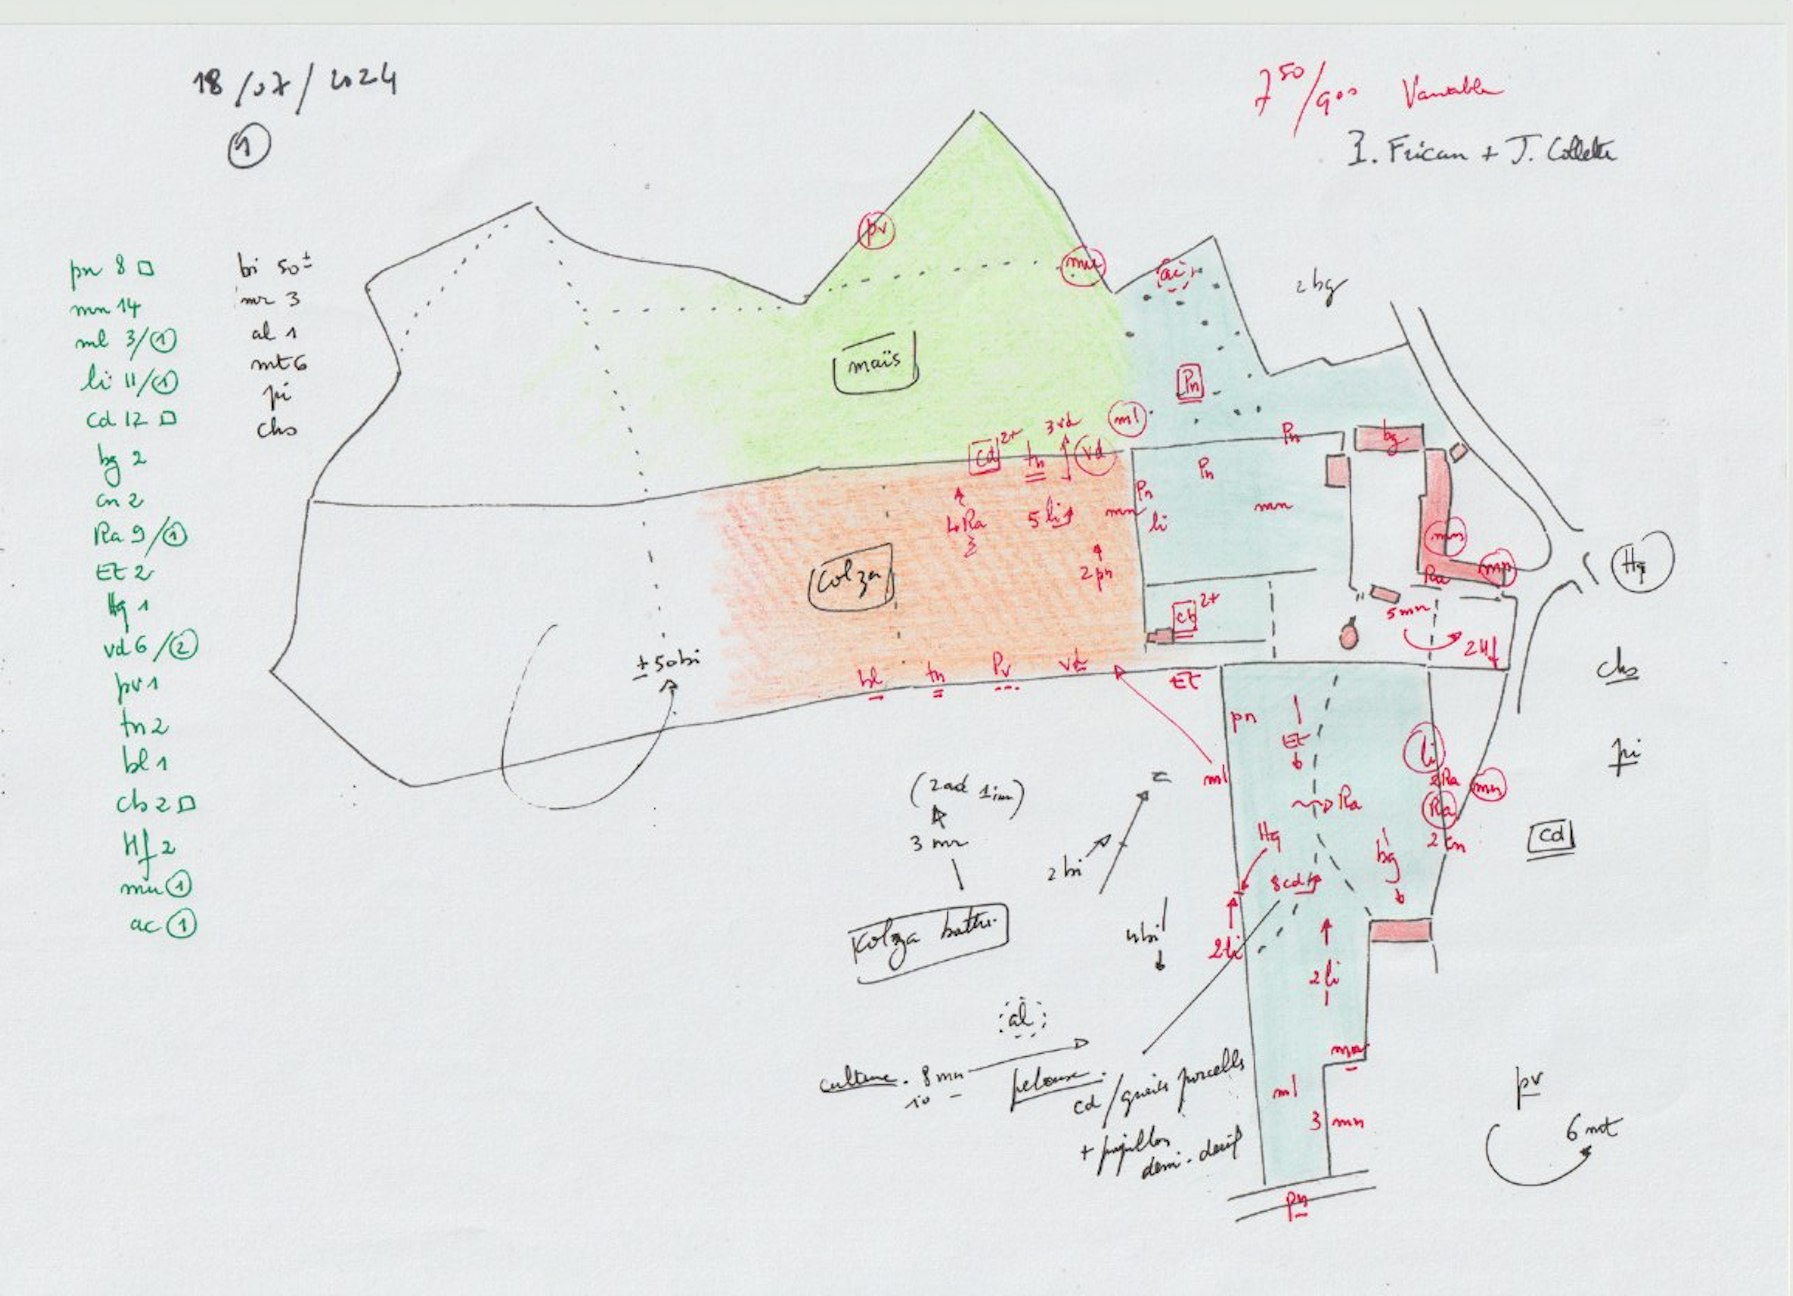 18/07/2024
1
7 50/900 Variable
I. Frican + J. Collette
pn 8 □
mn 14
ml 3/1
li 11/1
cd 12 □
bg 2
cn 2
Ra 9/1
Et 2
Hq 1
vd 6/2
pv 1
tn 2
bl 1
cb 2 □
Hf 2
mu 1
ac 1
bi 50±
mr 3
al 1
mt 6
pi
cho
pv
mu
ac
2 bg
maïs
Pn
ml
3 vd
cd 2+
tn
vd
Pn
bg
Pn
Pn
mn
li
mn
4 Ra
5 li
2 pn
colza
mn
mn
Ra
Hq
cb 2+
5 mn
2 Hf
± 50 bi
bl
tn
Pv
vd
Et
cho
pn
Et
li
pi
ml
2 Ra
mn
Ra
Ra
(2 ad 1 im)
3 mr
2 bi
Hq
bg
2 cn
cd
8 cd
Kolza battu
4 bi
2 li
2 li
al
culture. 8 mn
10 -
pelouse.
cd/
+ papillon
demi-deuil
ml
3 mn
pv
6 mt
pn